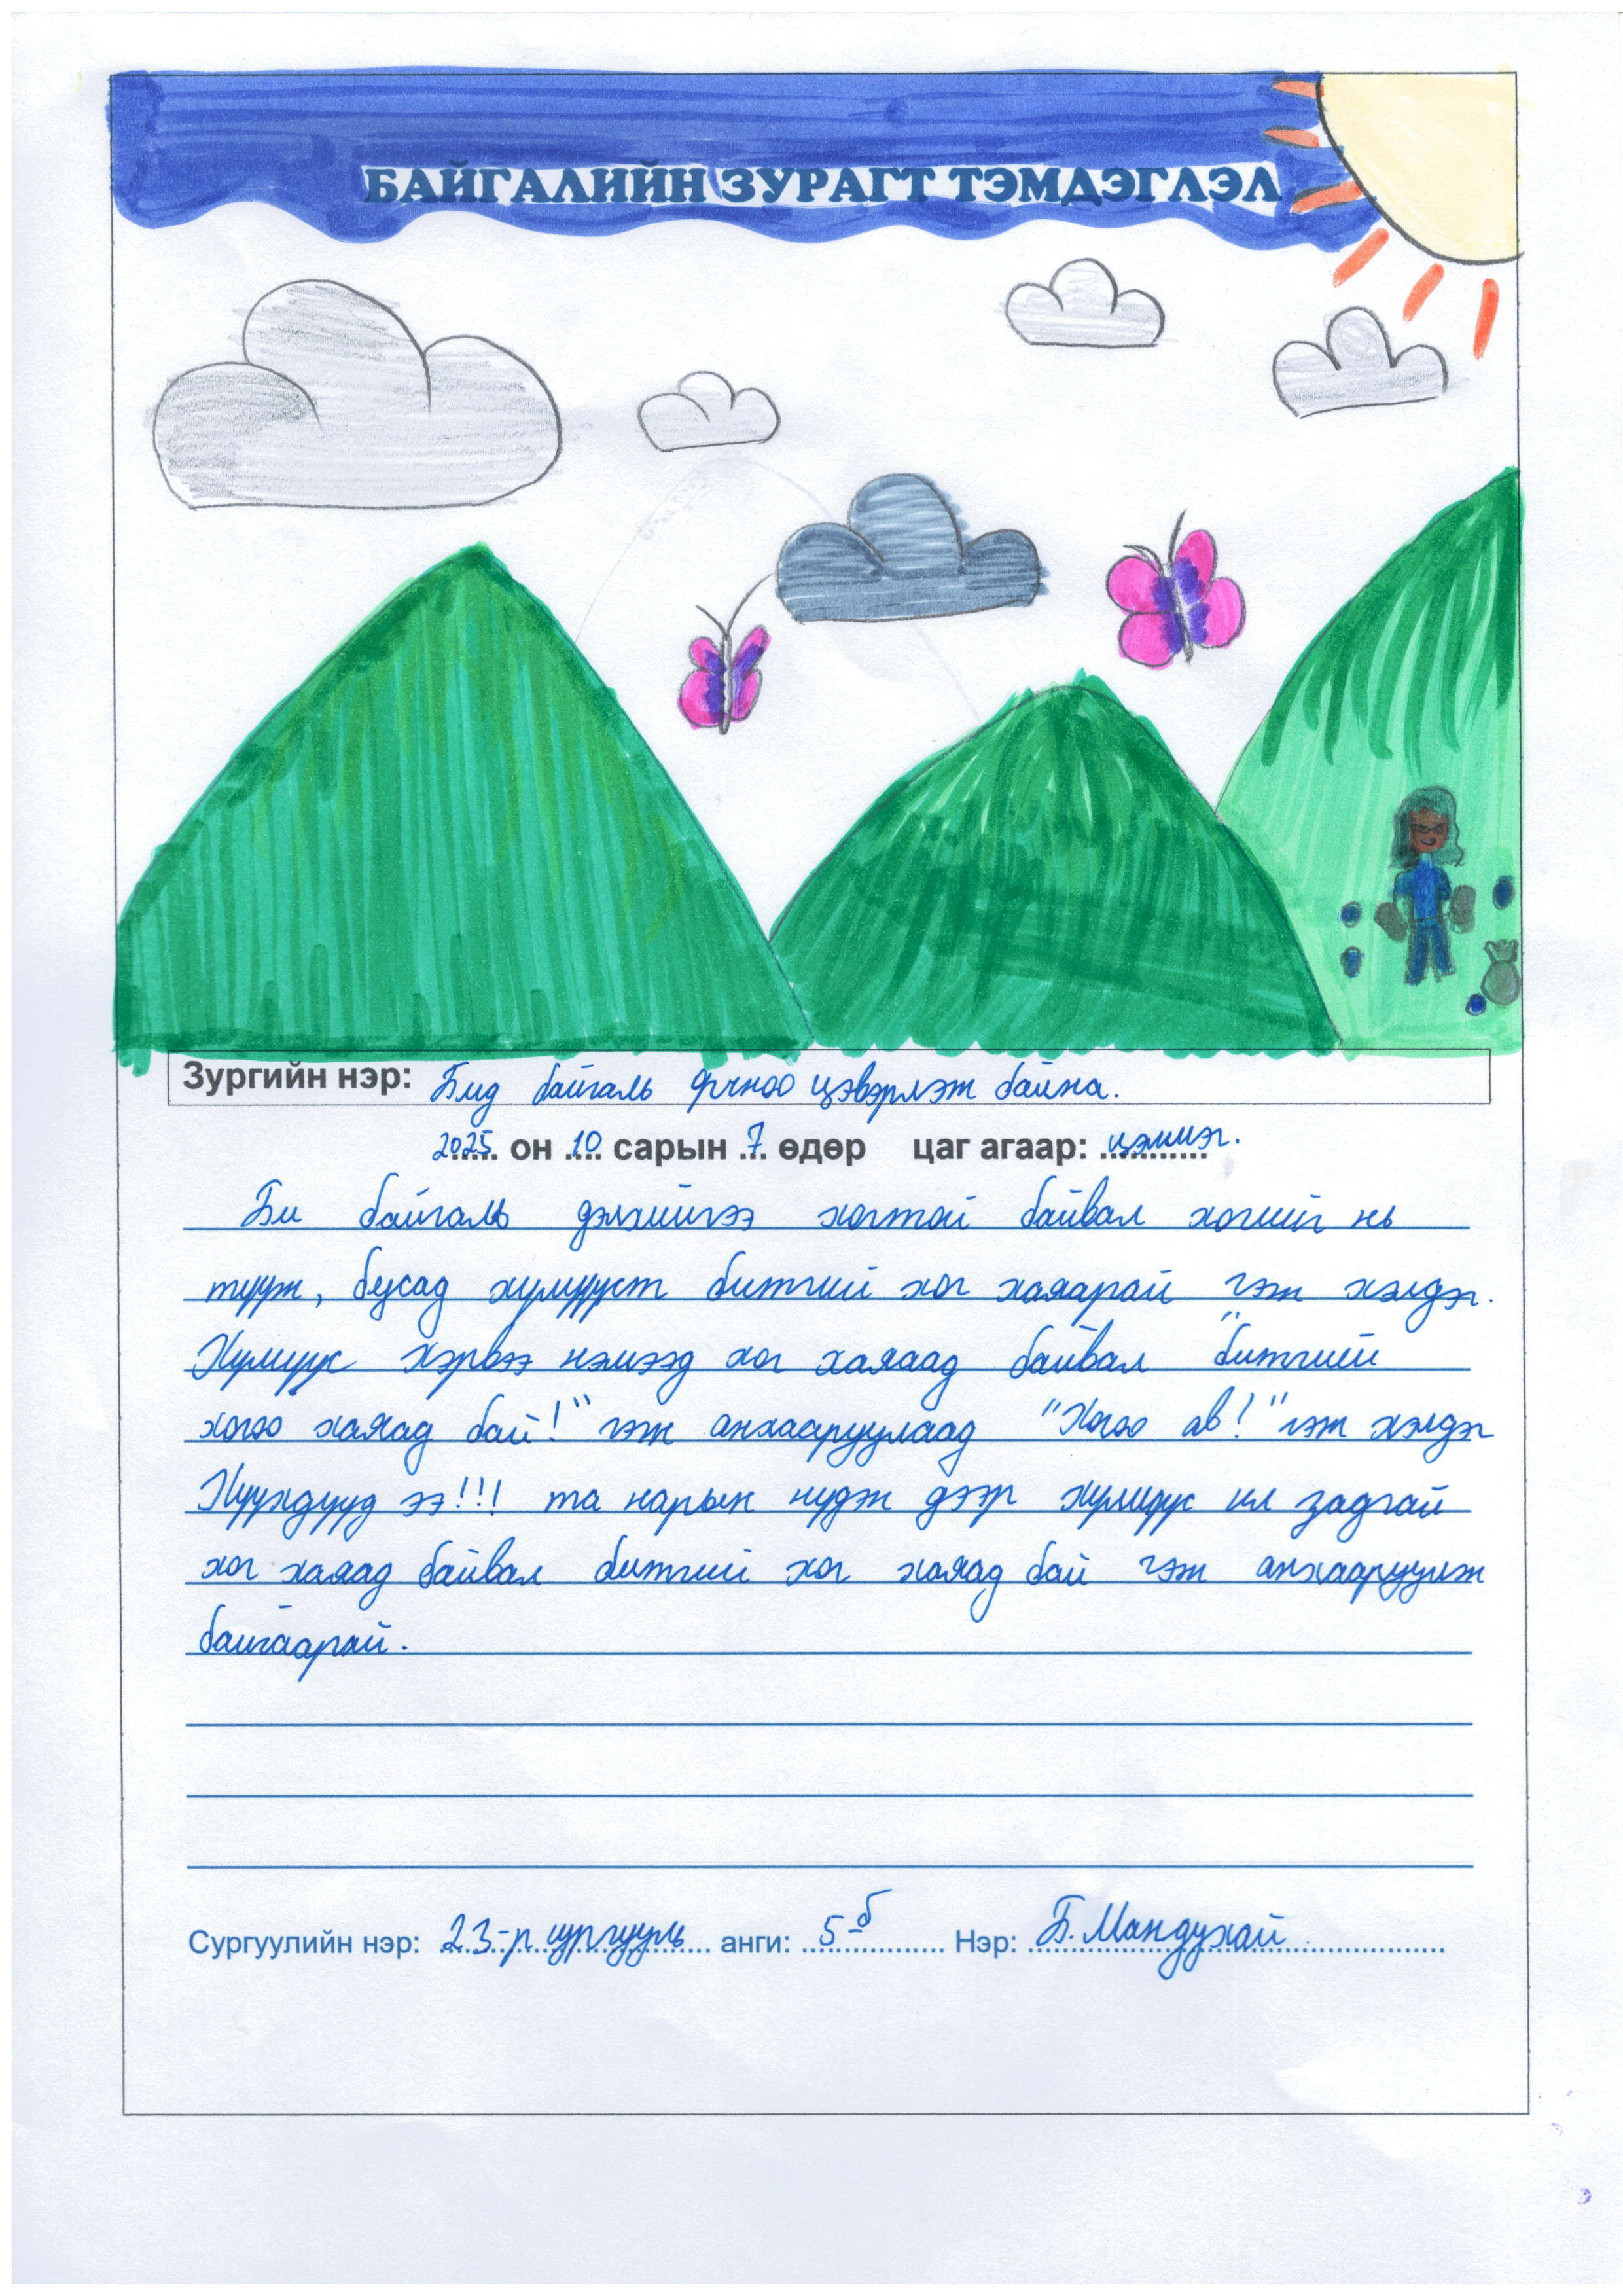 БАЙГАЛИЙН ЗУРАГТ ТЭМДЭГЛЭЛ
Зургийн нэр: Бид байгаль орчноо цэвэрлэж байна.
2025 он 10 сарын 7 өдөр цаг агаар: цэлмэг.
Би байгаль дэлхийгээ хогтой байвал хогийг нь
түүж, бусад хүмүүст битгий хог хаяарай гэж хэлдэг.
Хүмүүс хэрвээ нэмээд хог хаяаад байвал "битгий
хогоо хаяад бай!" гэж анхааруулаад "Хогоо ав!" гэж хэлдэг
Хүүхдүүд ээ!!! та нарын нүдэн дээр хүмүүс ил задгай
хог хаяад байвал битгий хог хаяад бай гэж анхааруулж
байгаарай.
Сургуулийн нэр: 23-р сургууль анги: 5-б Нэр: Б. Мандухай